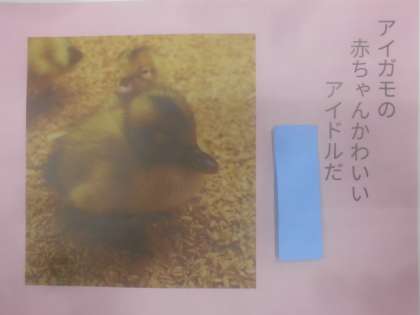 アイガモの
赤ちゃんかわいい
アイドルだ